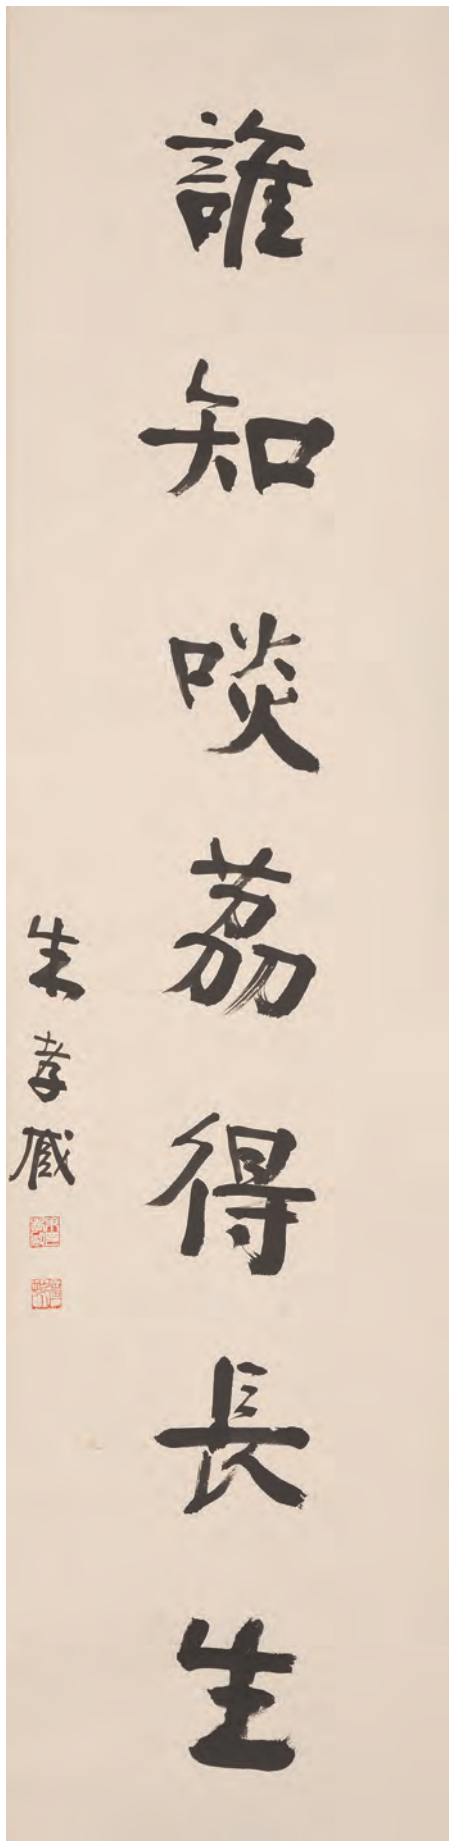 誰知啖荔得長生
朱孝臧